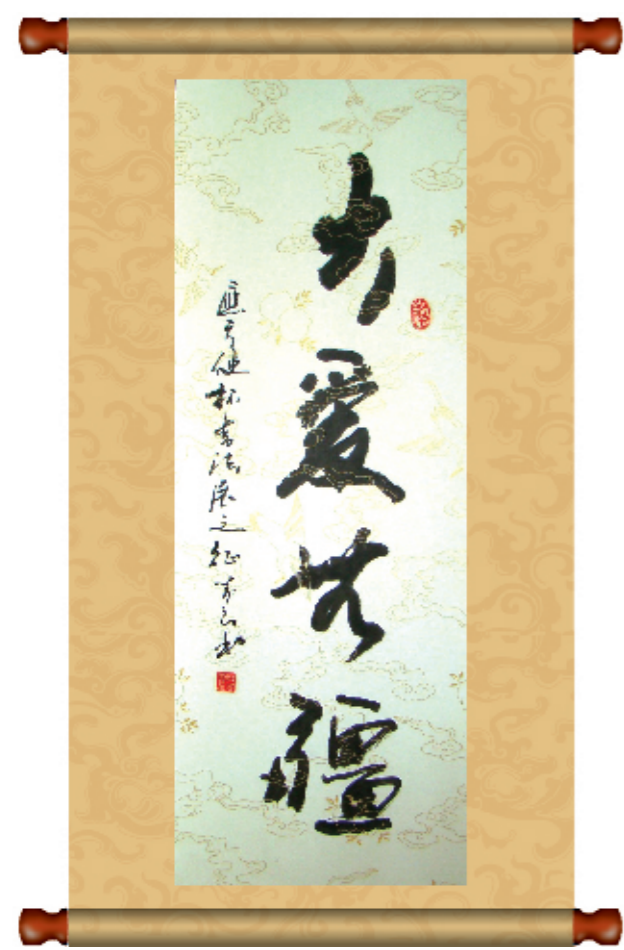 大爱无疆
应天使杯书法展之征